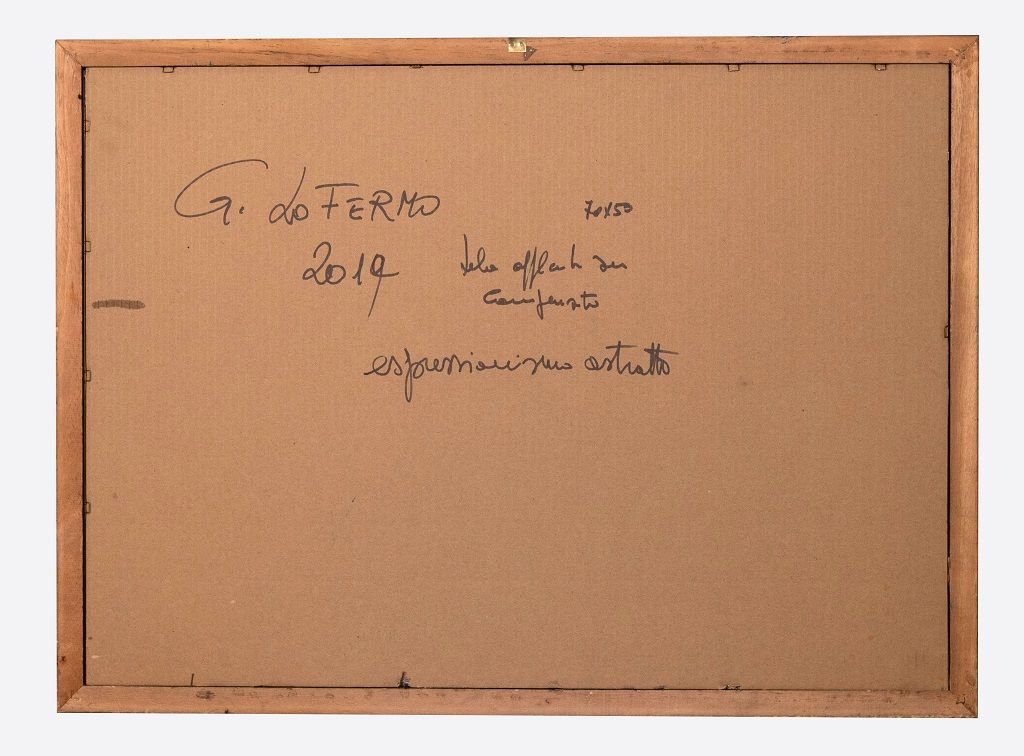 G. Lo FERMO
70x50
2019
tela applicata su
compensato
espressionismo astratto